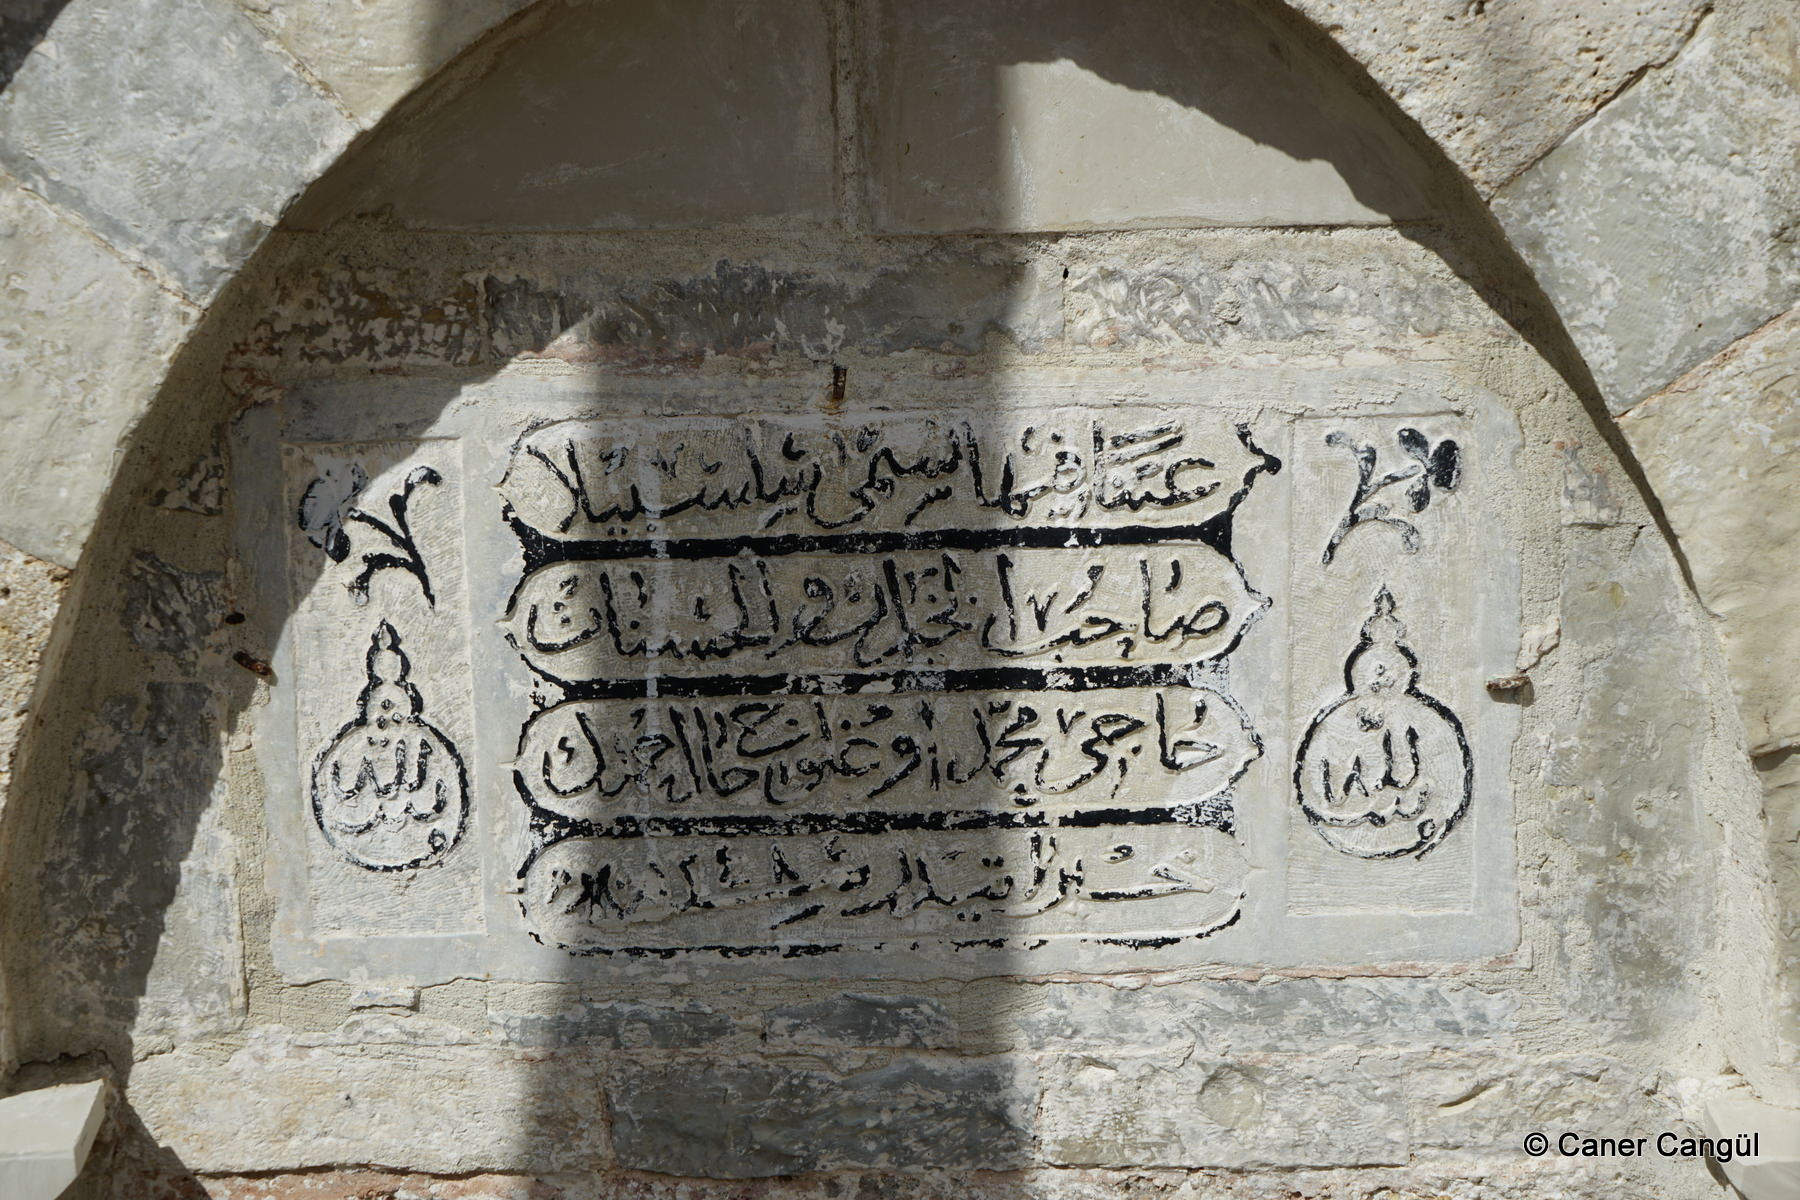 عينا فيها تسمى سلسبيلا
صاحب الخيرات والحسنات
حاجى محمد اوغلى حاجى احمدك
خيراتيدر سنه
© Caner Cangül